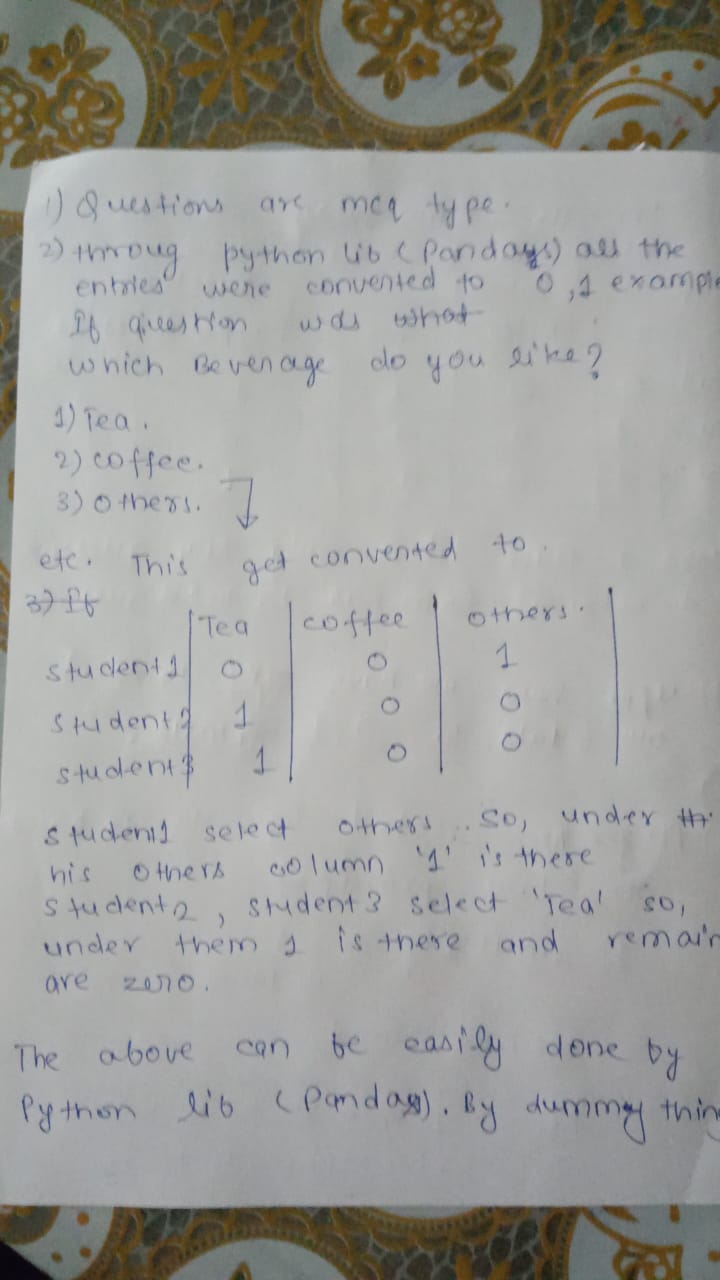 1) Questions are mcq type.
2) throug python lib (Pandays) all the
entries were convented to 0,1 example
If question was what
which Bevenage do you like?
1) Tea.
2) coffee.
3) others.
etc. This get convented to.
3) If
Tea coffee others.
student1 0 0 1
student2 1 0 0
student3 1 0 0
student1 select others. so, under
his others column '1' is there
student2, student3 select 'Tea' so,
under them 1 is there and remain
are zero.
The above can be easily done by
Python lib (Pandas). By dummy thin